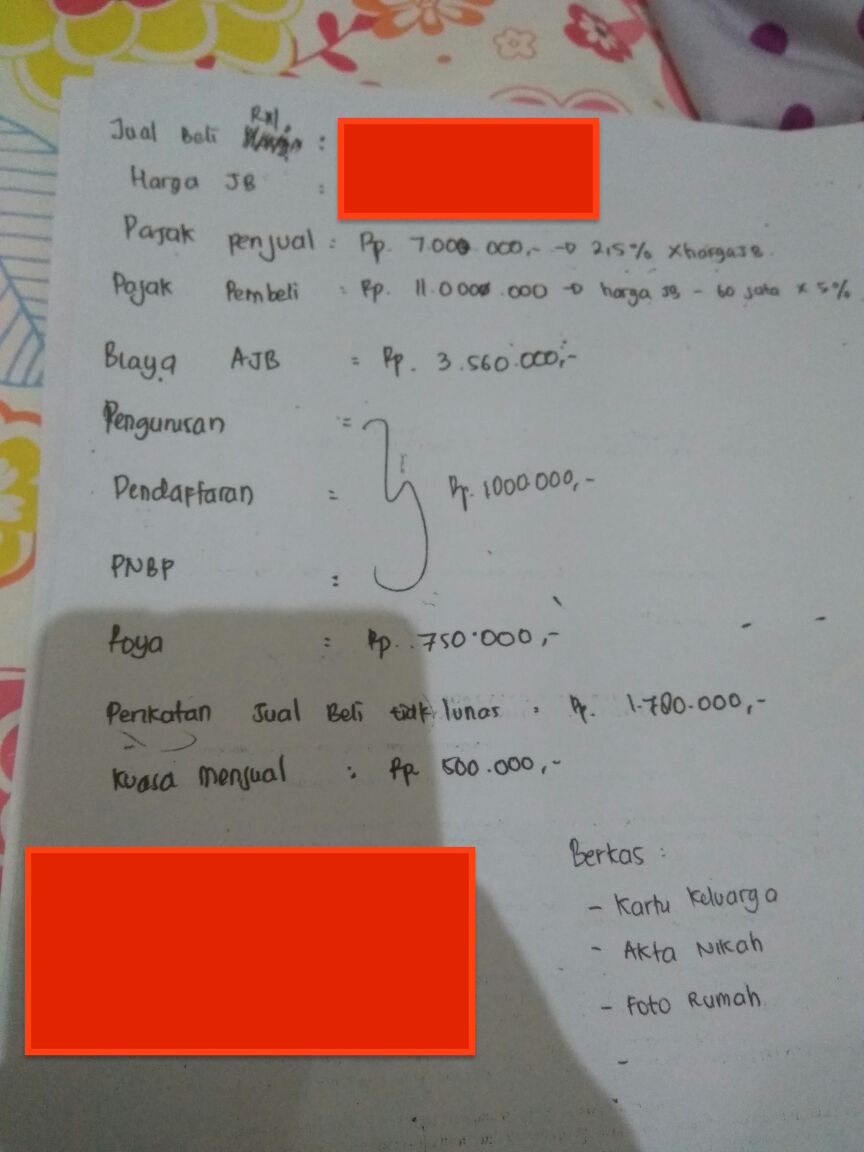 Jual Beli Rml. :
Harga JB :
Pajak penjual : Rp. 7.000.000,- → 2,5% x harga JB.
Pajak Pembeli : Rp. 11.000.000 → harga JB - 60 juta x 5%
Biaya AJB = Rp. 3.560.000,-
Pengurusan =
Pendaftaran = Rp. 1000.000,-
PNBP :
Roya : Rp. 750.000,-
Perikatan Jual Beli tidk lunas : Rp. 1.780.000,-
Kuasa menjual : Rp 500.000,-
Berkas :
- Kartu Keluarga
- Akta Nikah
- Foto Rumah
-